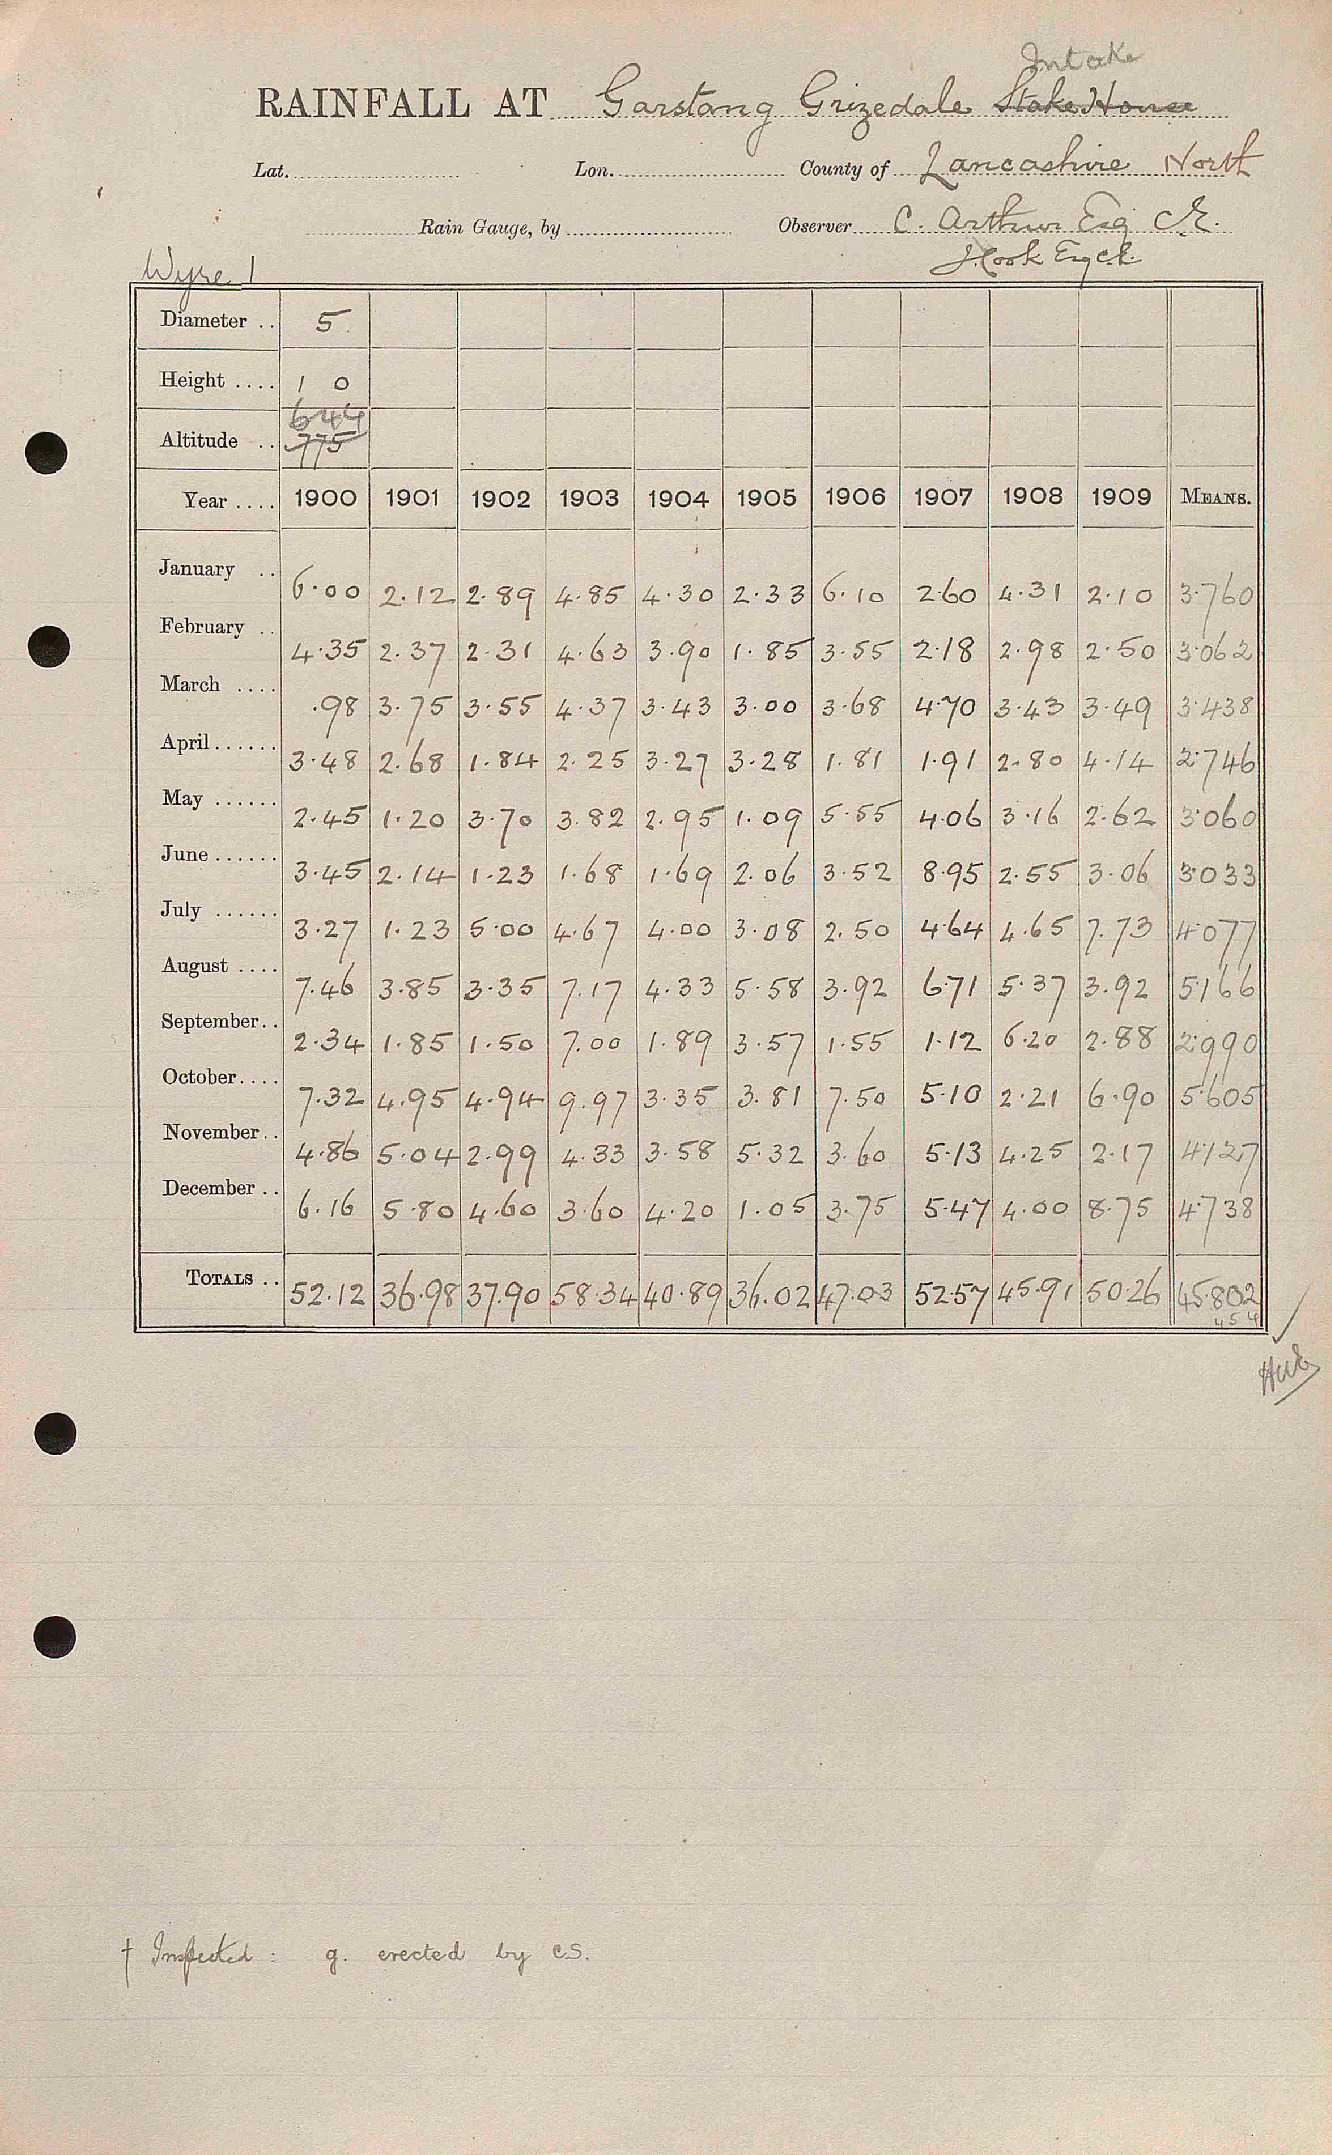 Intake
RAINFALL AT Garstang Grizedale Stake House
Lat. Lon. County of Lancashire North
Rain Gauge, by Observer C. Arthur Esq C.E.
J. Cook Esq C.E.
Wyre 1
Diameter .. 5
Height .... 1 0
644
Altitude .. 775
Year .... 1900 1901 1902 1903 1904 1905 1906 1907 1908 1909 MEANS.
January .. 6.00 2.12 2.89 4.85 4.30 2.33 6.10 2.60 4.31 2.10 3.760
February .. 4.35 2.37 2.31 4.63 3.90 1.85 3.55 2.18 2.98 2.50 3.062
March .... .98 3.75 3.55 4.37 3.43 3.00 3.68 4.70 3.43 3.49 3.438
April...... 3.48 2.68 1.84 2.25 3.27 3.28 1.81 1.91 2.80 4.14 2.746
May ...... 2.45 1.20 3.70 3.82 2.95 1.09 5.55 4.06 3.16 2.62 3.060
June...... 3.45 2.14 1.23 1.68 1.69 2.06 3.52 8.95 2.55 3.06 3.033
July ...... 3.27 1.23 5.00 4.67 4.00 3.08 2.50 4.64 4.65 7.73 4.077
August .... 7.46 3.85 3.35 7.17 4.33 5.58 3.92 6.71 5.37 3.92 5.166
September.. 2.34 1.85 1.50 7.00 1.89 3.57 1.55 1.12 6.20 2.88 2.990
October.... 7.32 4.95 4.94 9.97 3.35 3.81 7.50 5.10 2.21 6.90 5.605
November.. 4.86 5.04 2.99 4.33 3.58 5.32 3.60 5.13 4.25 2.17 4.127
December .. 6.16 5.80 4.60 3.60 4.20 1.05 3.75 5.47 4.00 8.75 4.738
TOTALS .. 52.12 36.98 37.90 58.34 40.89 36.02 47.03 52.57 45.91 50.26 45.802
† Inspected : g. erected by C.S.